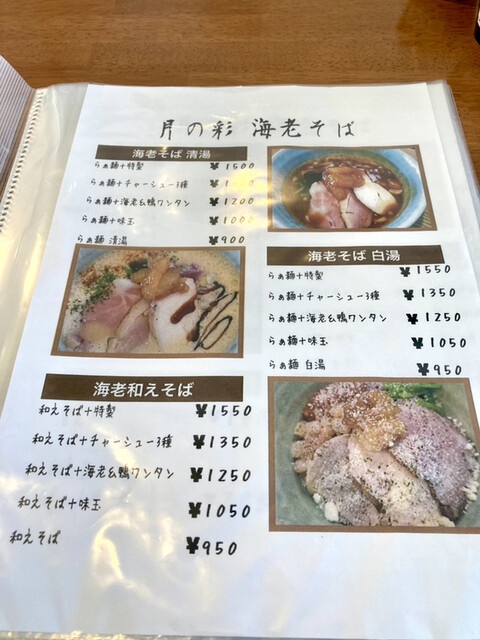 月の彩 海老そば
海老そば 清湯
らぁ麺+特製 ¥1500
らぁ麺+チャーシュー3種 ¥
らぁ麺+海老&鴨ワンタン ¥1200
らぁ麺+味玉 ¥1000
らぁ麺 清湯 ¥900
海老そば 白湯
らぁ麺+特製 ¥1550
らぁ麺+チャーシュー3種 ¥1350
らぁ麺+海老&鴨ワンタン ¥1250
らぁ麺+味玉 ¥1050
らぁ麺 白湯 ¥950
海老和えそば
和えそば+特製 ¥1550
和えそば+チャーシュー3種 ¥1350
和えそば+海老&鴨ワンタン ¥1250
和えそば+味玉 ¥1050
和えそば ¥950